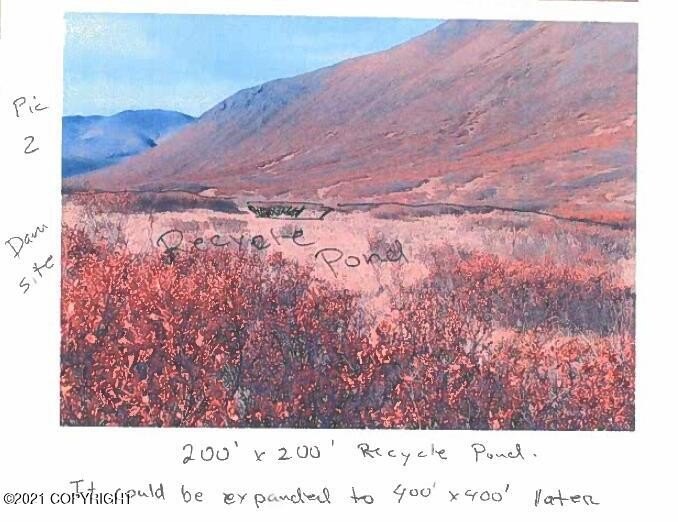 Pic
2
Dam
site
Recycle
Pond
200' x 200' Recycle Pond.
It could be expanded to 400' x 400' later
©2021 COPYRIGHT